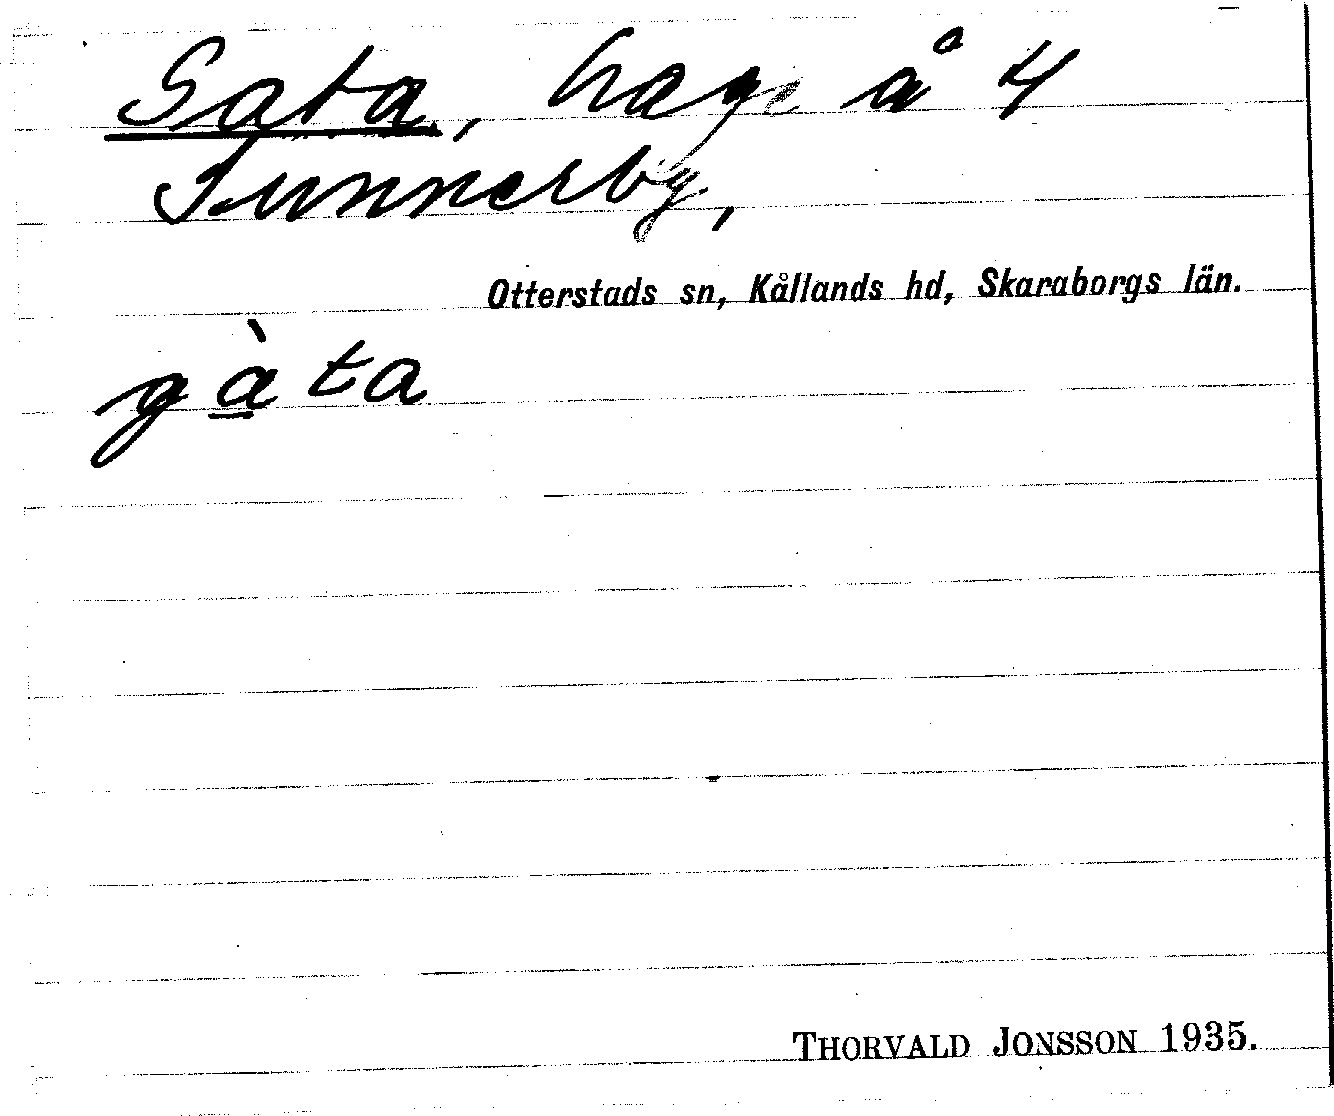 Gata, hage å 4
Sunnerby,
Otterstads sn, Kållands hd, Skaraborgs län.
gàta
THORVALD JONSSON 1935.